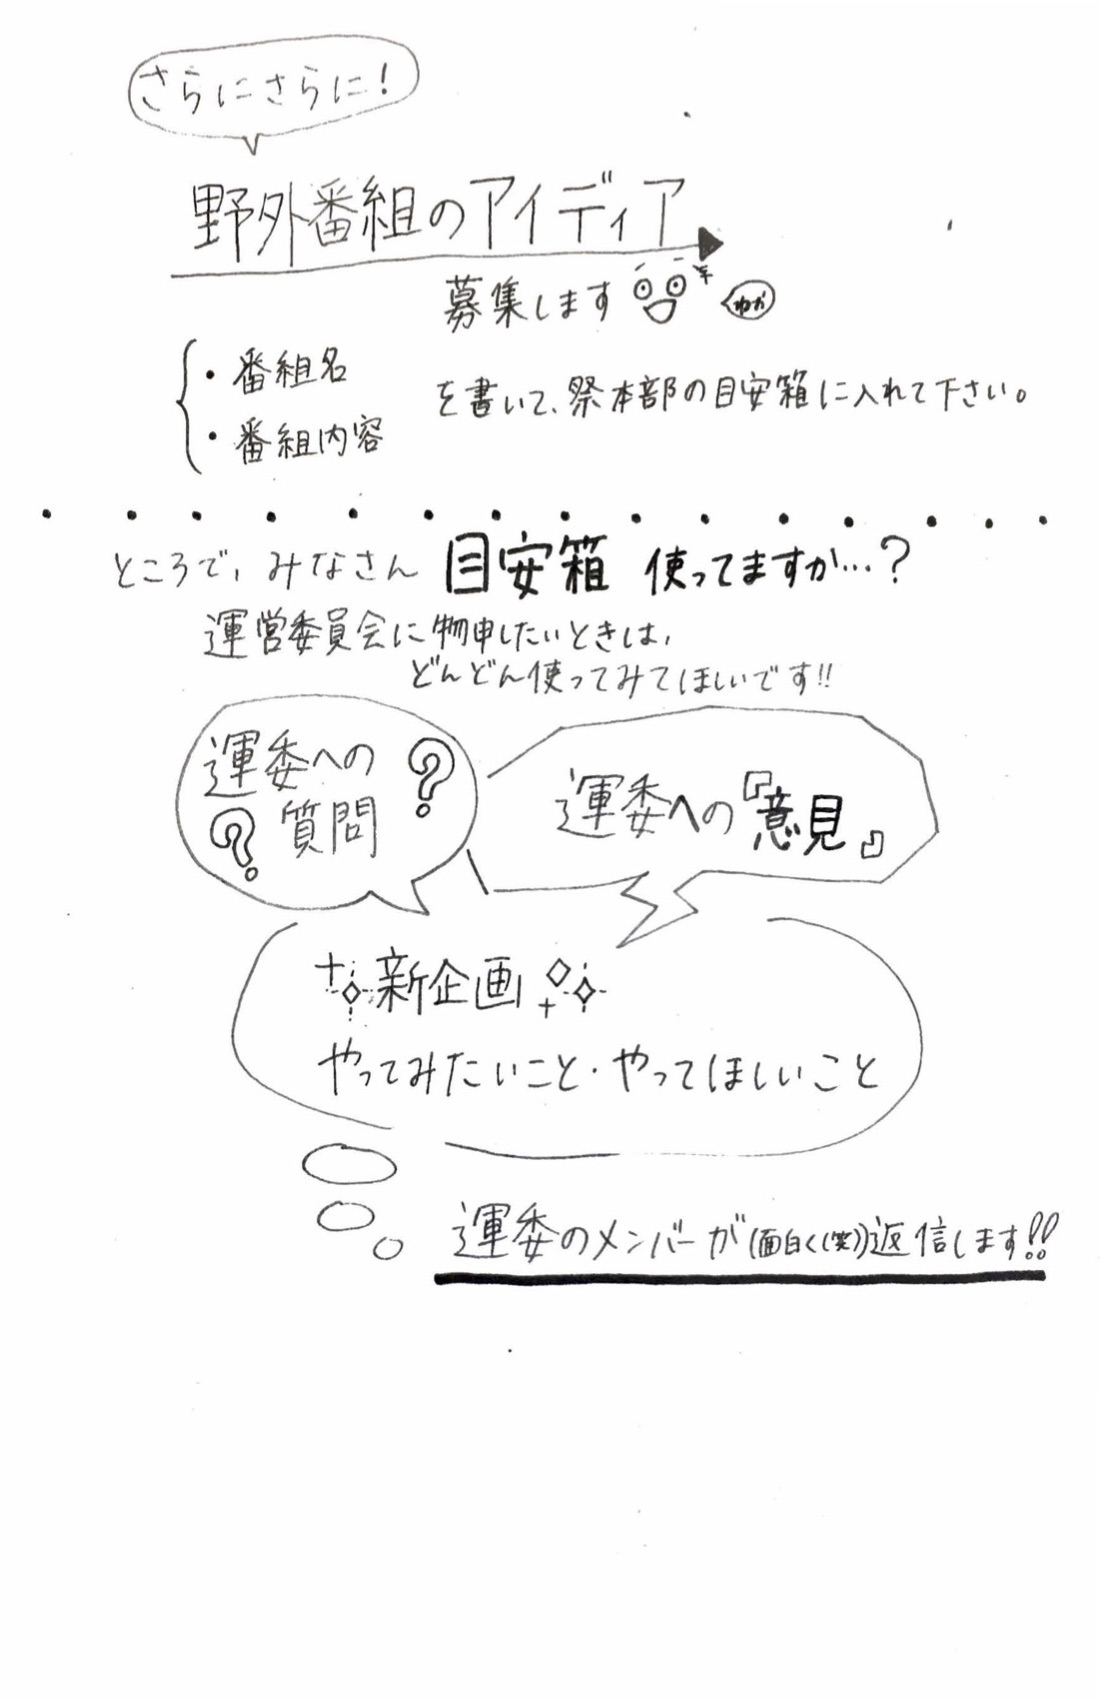 さらにさらに!
野外番組のアイディア
募集します
・番組名
・番組内容
を書いて、祭本部の目安箱に入れて下さい。
ところで、みなさん 目安箱 使ってますか…?
運営委員会に物申したいときは、
どんどん使ってみてほしいです!!
運委への
質問
??
運委への『意見』
新企画
やってみたいこと・やってほしいこと
運委のメンバーが(面白く(笑))返信します!!